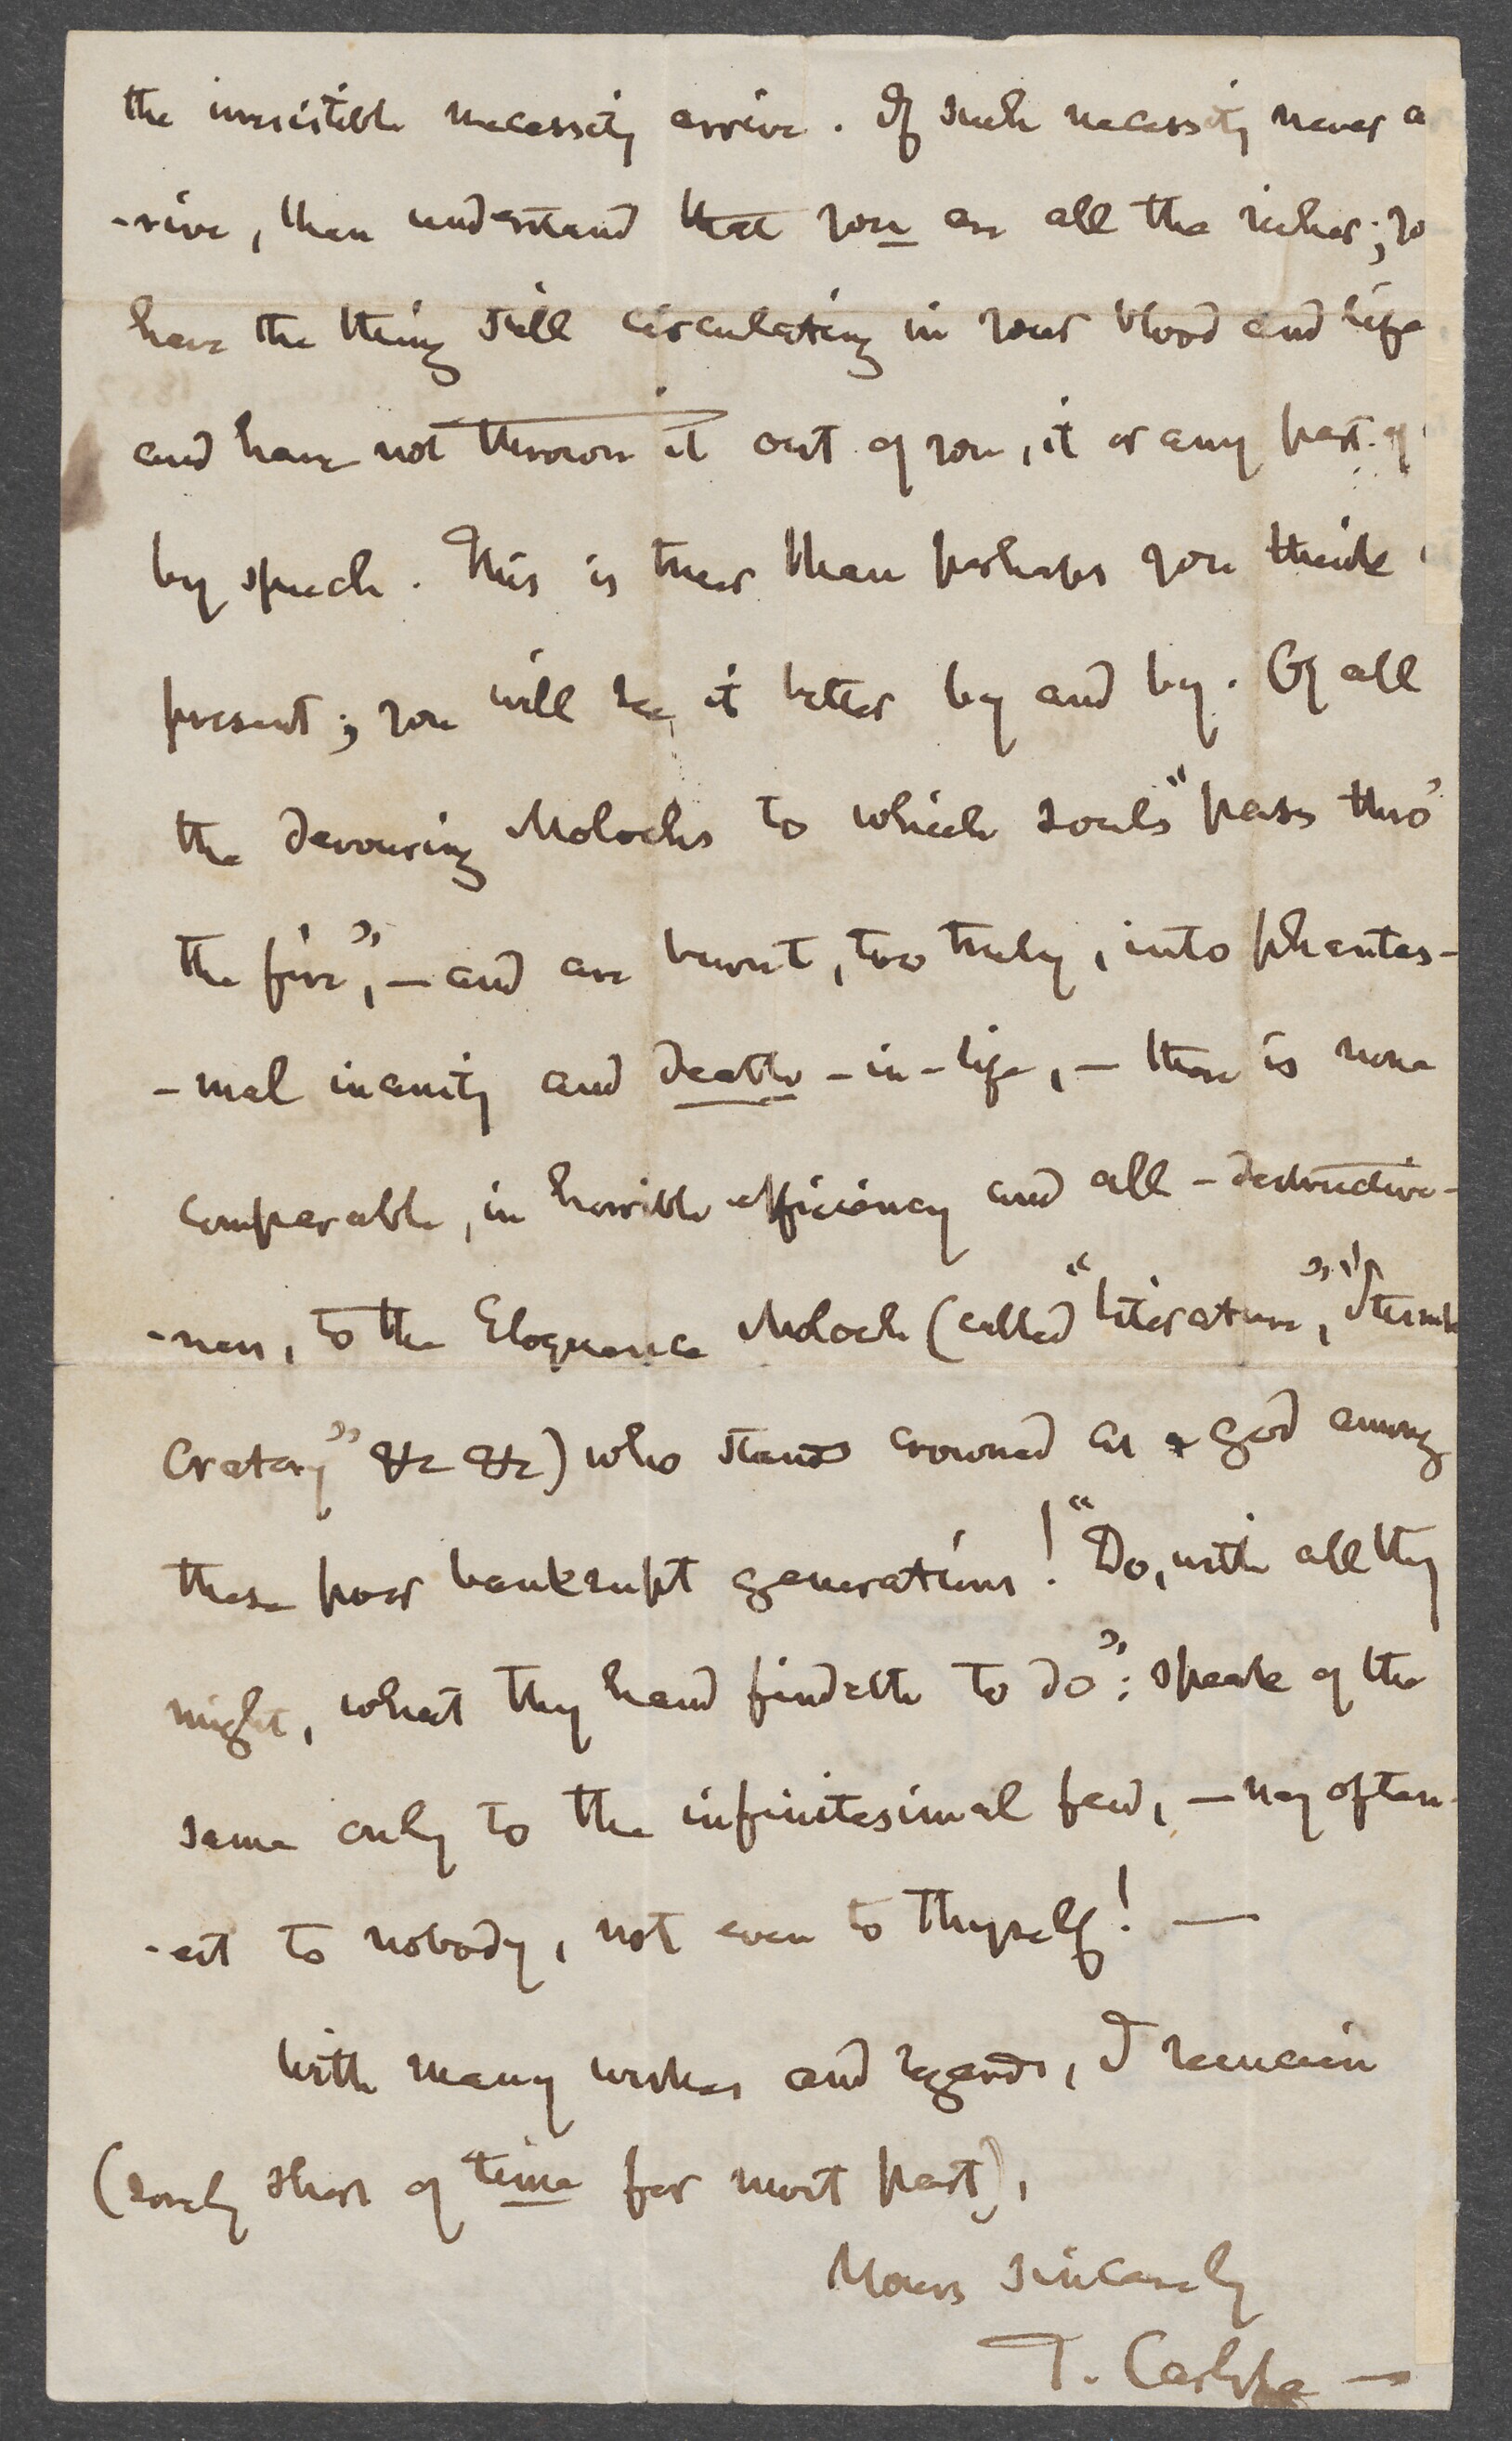 the irresistible necessity arrive. If such necessity never a
-rive, then understand that you are all the richer; yo
have the thing still circulating in your blood and life
and have not thrown it out of you, it or any part of
by speech. This is truer than perhaps you think
present; you will see it better by and by. Of all
the devouring Molochs to which souls "pass thro'
the fire", — and are burnt, too truly, into phantas-
-mal inanity and death-in-life, — there is none
comparable, in horrible efficiency and all-destructive-
-ness, to the Eloquence Moloch (called "literature",
Oratory" &c &c) who stands crowned as a god among
these poor bankrupt generations! "Do, with all thy
might, what thy hand findeth to do": speak of the
same only to the infinitesimal few, — nay often-
-est to nobody, not even to thyself! —
With many wishes and regards, I remain
(sorely short of time for most part),
Yours sincerely
T. Carlyle —